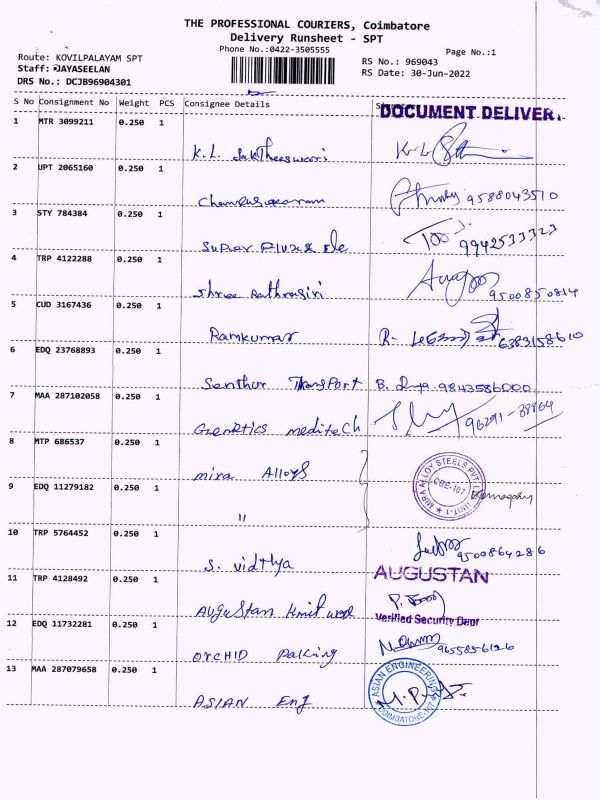 THE PROFESSIONAL COURIERS, Coimbatore
Delivery Runsheet - SPT
Phone No.:0422-3505555
Page No.:1
Route: KOVILPALAYAM SPT
RS No.: 969043
Staff: JAYASEELAN
RS Date: 30-Jun-2022
DRS No.: DCJB96904301
S No Consignment No Weight PCS Consignee Details
DOCUMENT DELIVER.
1 MTR 3099211 0.250 1
K.L.
2 UPT 2065160 0.250 1
9588043510
3 STY 784384 0.250 1
Super 9942533323
4 TRP 4122288 0.250 1
Shree 9500850814
5 CUD 3167436 0.250 1
Ramkumar R. 6383158610
6 EDQ 23768893 0.250 1
Senthur Transport B. 9843586000
7 MAA 287102058 0.250 1
Genetics meditech 96291-38864
8 MTP 686537 0.250 1
mira Alloys
MIRA ALLOY STEELS PVT LTD
CBE-107
UNIT-1
9 EDQ 11279182 0.250 1
"
10 TRP 5764452 0.250 1
S. vidthya 9500864286
11 TRP 4128492 0.250 1
AUGUSTAN
Augustan knit wear
12 EDQ 11732281 0.250 1
Verified Security Dept
ORCHID Packing 9655856126
13 MAA 287079658 0.250 1
ASIAN Eng
ASIAN ENGINEERINGS
COIMBATORE-107